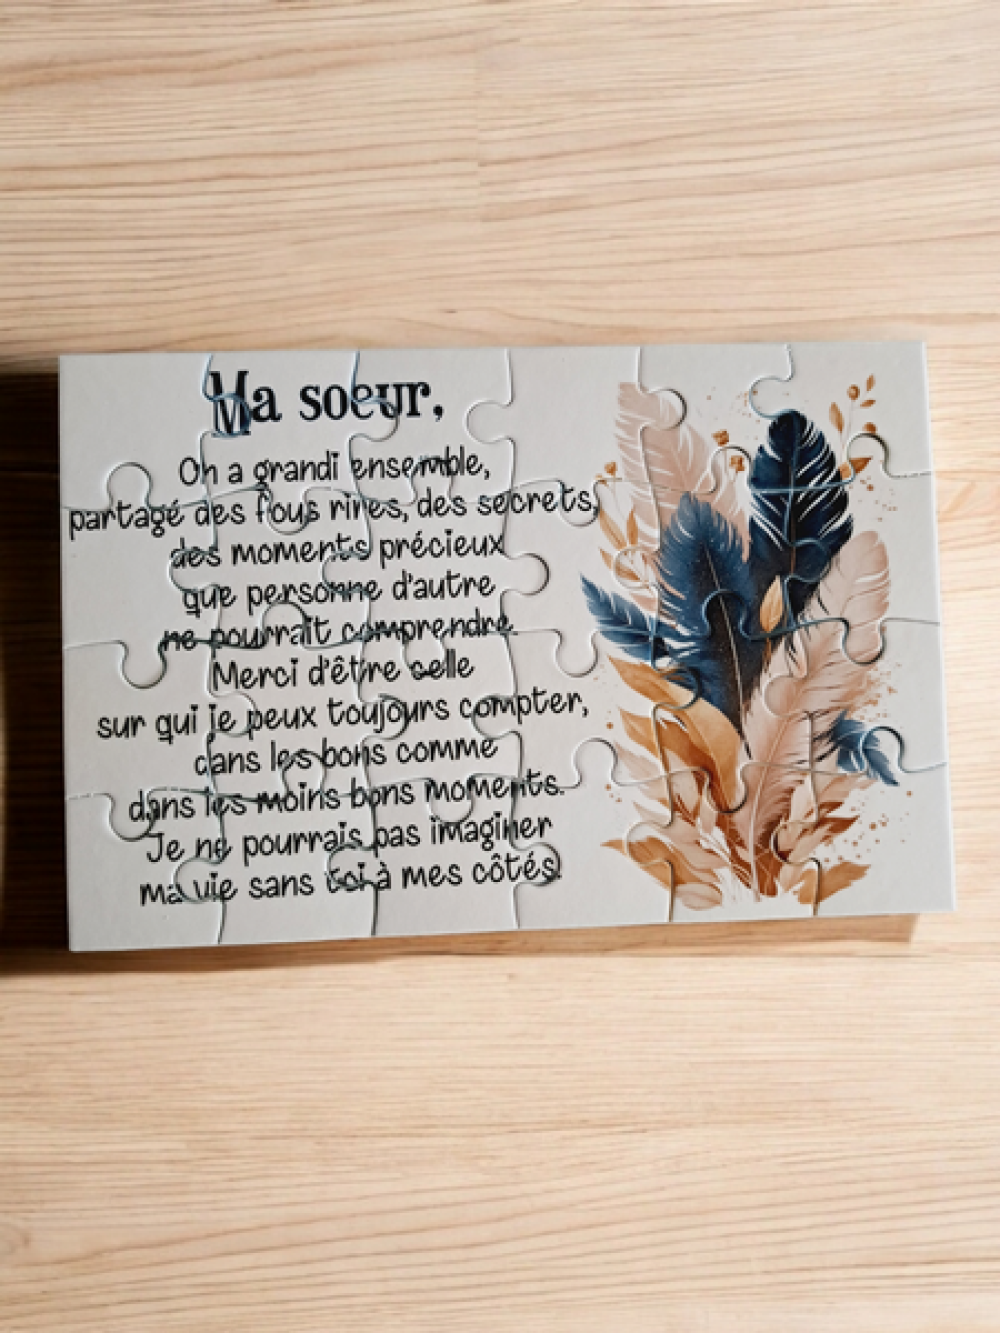 Ma soeur,
On a grandi ensemble,
partagé des fous rires, des secrets,
des moments précieux
que personne d'autre
ne pourrait comprendre
Merci d'être celle
sur qui je peux toujours compter,
dans les bons comme
dans les moins bons moments.
Je ne pourrais pas imaginer
ma vie sans toi à mes côtés!